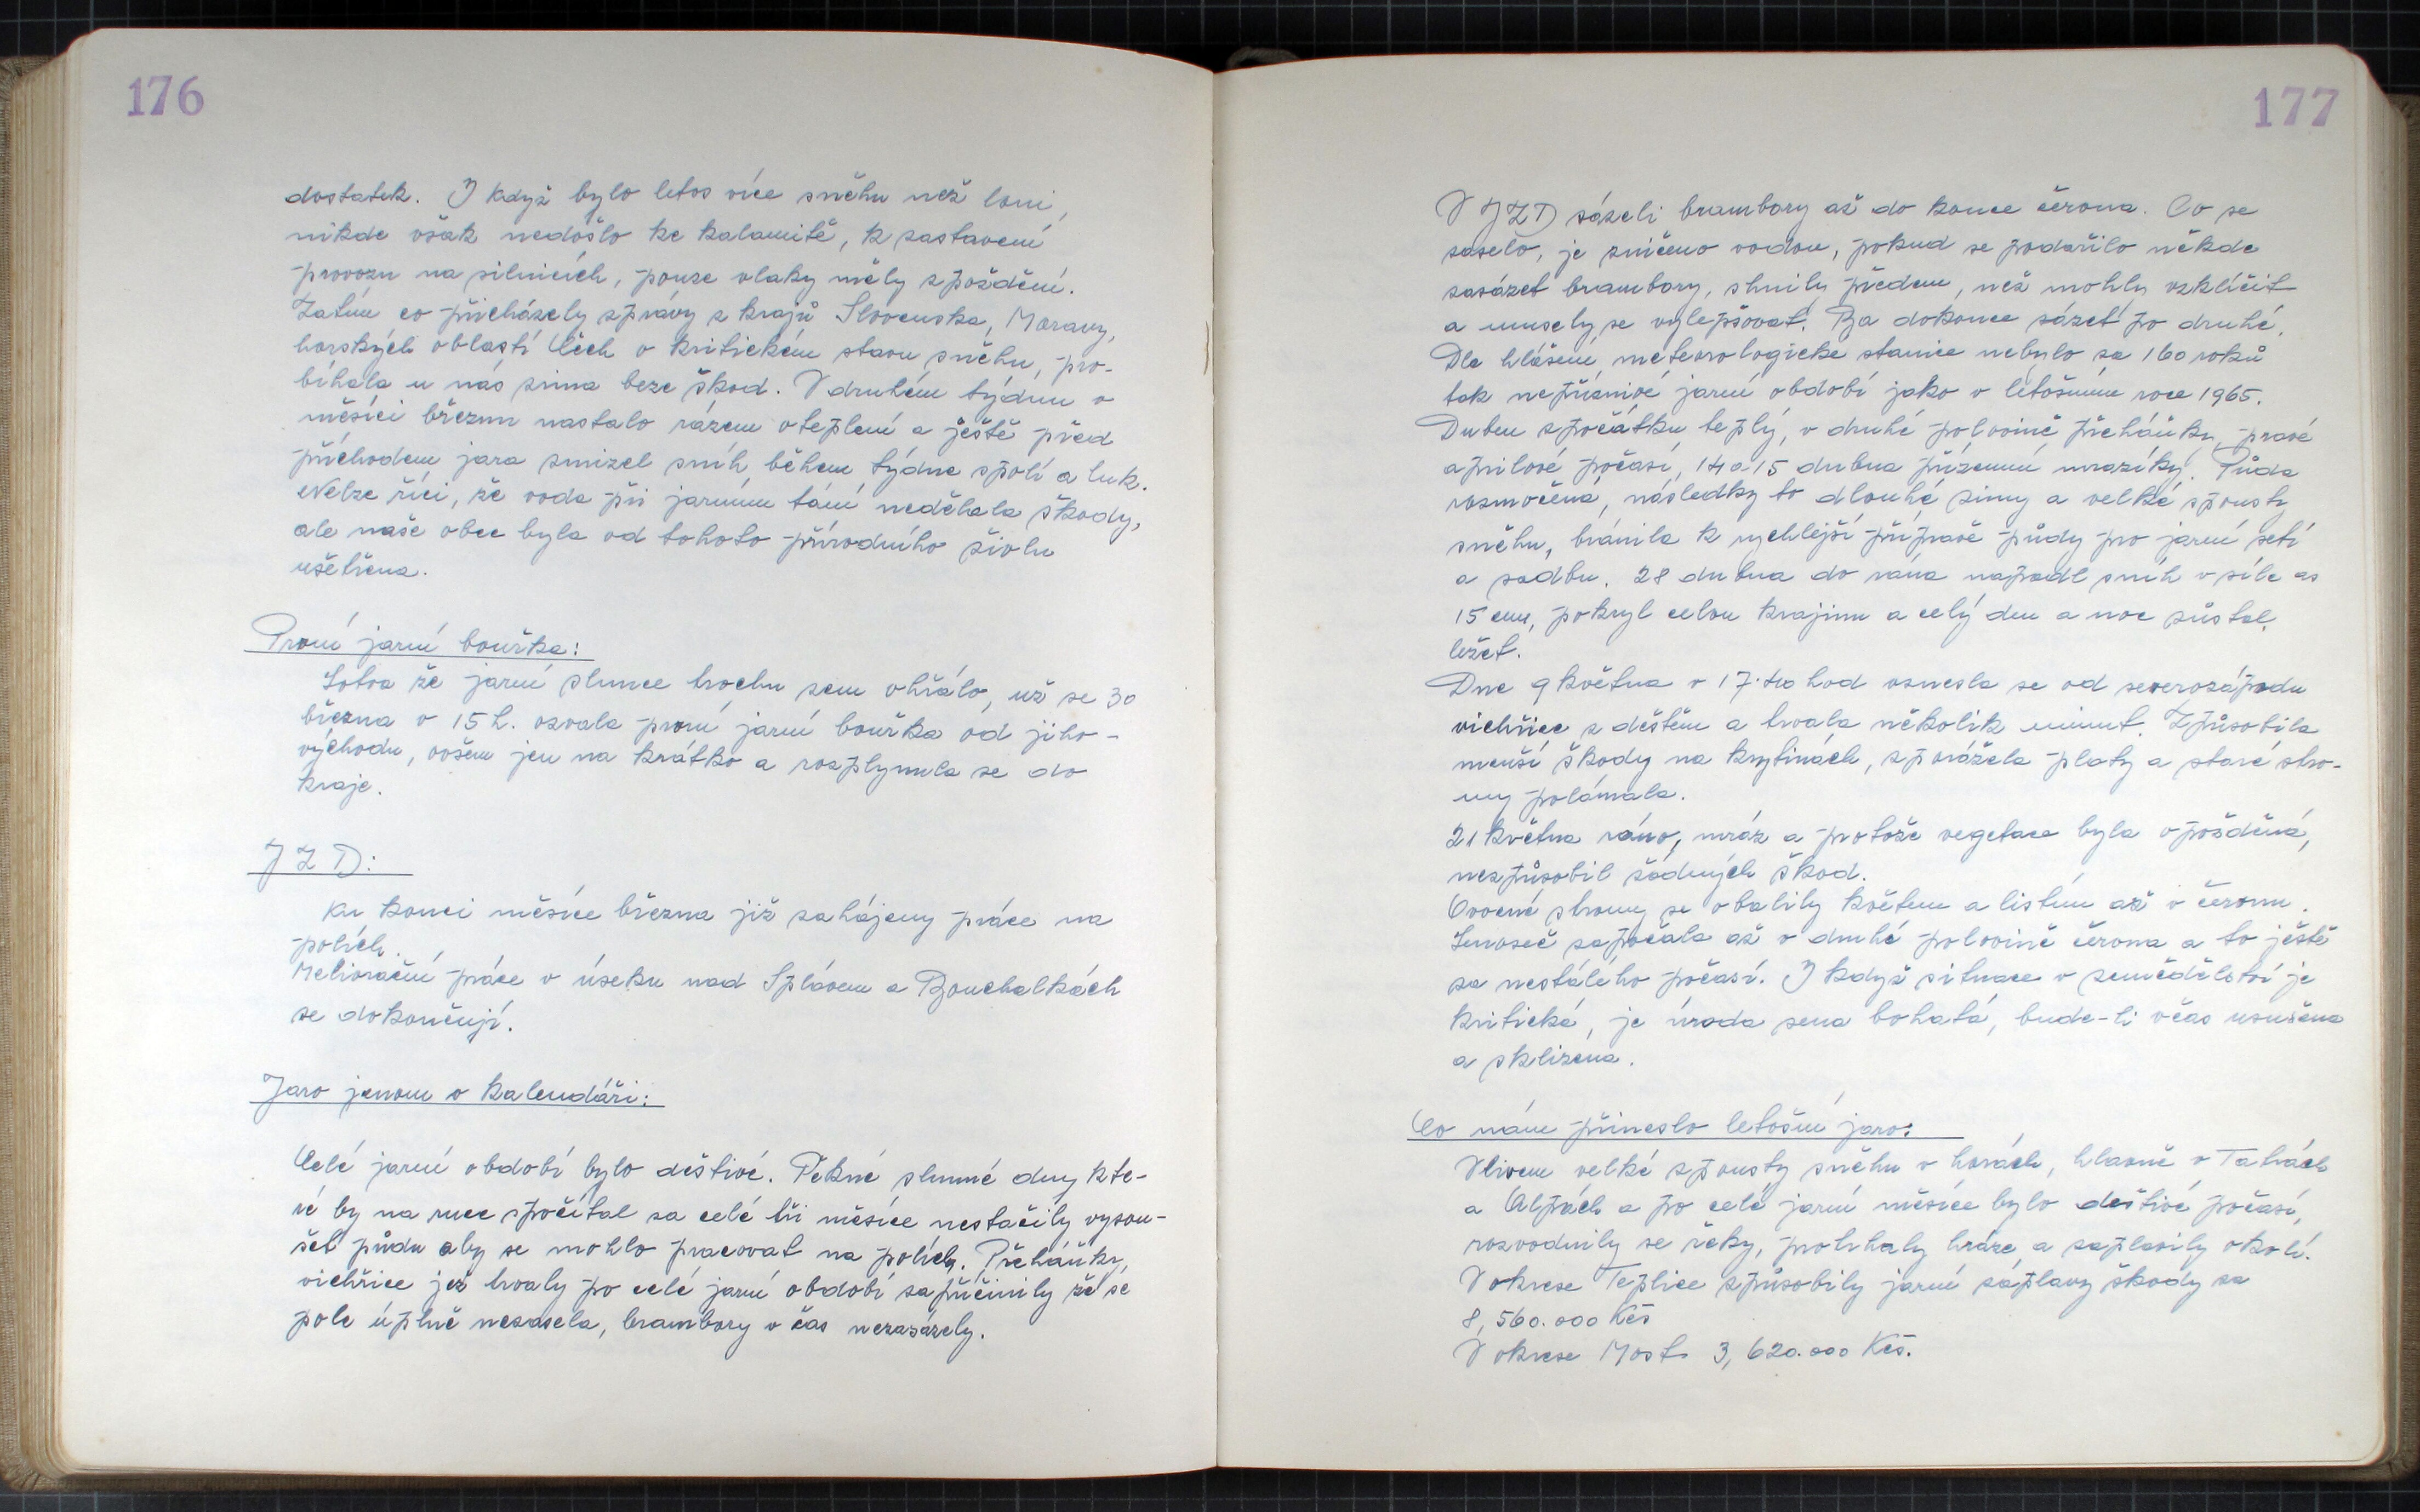 176
dostatek. I když bylo letos více sněhu než loni,
nikde však nedošlo ke kalamitě, k zastavení
provozu na silnicích, pouze vlaky měly zpoždění.
Zatím co přicházely zprávy z krajů Slovenska, Moravy,
horských oblastí Čech o kritickém stavu sněhu, pro-
bíhala u nás zima beze škod. V druhém týdnu v
měsíci březnu nastalo rázem oteplení a ještě před
příchodem jara zmizel sníh během týdne s polí a luk.
Nelze říci, že voda při jarním tání neděhala škody,
ale naše obec byla od tohoto přírodního živlu
ušetřena.
První jarní bouřka:
Sotva že jarní slunce trochu zem ohřálo, už se 30
března v 15 h. ozvala první jarní bouřka od jiho-
východu, ovšem jen na krátko a rozplynula se do
kraje.
JZD:
Ku konci měsíce března již zahájeny práce na
polích.
Meliorační práce v úseku nad Splávem a Bouchalkách
se dokončují.
Jaro jenom v kalendáři:
Celé jarní období bylo deštivé. Pěkné slunné dny kte-
ré by na ruce spočítal za celé tři měsíce nestačily vysou-
šet půdu aby se mohlo pracovat na polích. Přeháňky,
vichřice jež trvaly po celé jarní období zapříčinily že se
pole úplně nezasela, brambory v čas nezasázely.
177
V JZD sázeli brambory až do konce června. Co se
zaselo, je zničeno vodou, pokud se podařilo někde
zasázet brambory, shnily předem, než mohly vzklíčit
a musely se vylepšovat. Ba dokonce sázet po druhé.
Dle hlášení meteorologické stanice nebylo za 160 roků
tak nepříznivé jarní období jako v letošním roce 1965.
Duben zpočátku teplý, v druhé polovině přeháňky, pravé
aprilové počasí, 14 a 15 dubna přízemní mrazíky. Půda
rozmočená, následky to dlouhé zimy a velké spousty
sněhu, bránila k rychlejší přípravě půdy pro jarní setí
a sadbu. 28 dubna do rána napadl sníh v síle as
15 cm, pokryl celou krajinu a celý den a noc zůstal
ležet.
Dne 9 května v 17.40 hod vznesla se od severozápadu
vichřice s deštěm a trvala několik minut. Způsobila
menší škody na krytinách, zporážela ploty a staré stro-
my polámala.
21 května ráno, mráz a protože vegetace byla opožděná,
nezpůsobil žádných škod.
Ovocné stromy se obalily květem a listím až v červnu.
Senoseč započala až v druhé polovině června a to ještě
za nestálého počasí. I když situace v zemědělství je
kritická, je úroda sena bohatá, bude-li včas usušena
a sklizena.
Co nám přineslo letošní jaro:
Vlivem velké spousty sněhu v horách, hlavně v Tatrách
a Alpách a po celé jarní měsíce bylo deštivé počasí,
rozvodnily se řeky, protrhaly hráze a zaplavily okolí.
V okrese Teplice způsobily jarní záplavy škody za
8,560.000 Kčs
V okrese Most 3,620.000 Kčs.